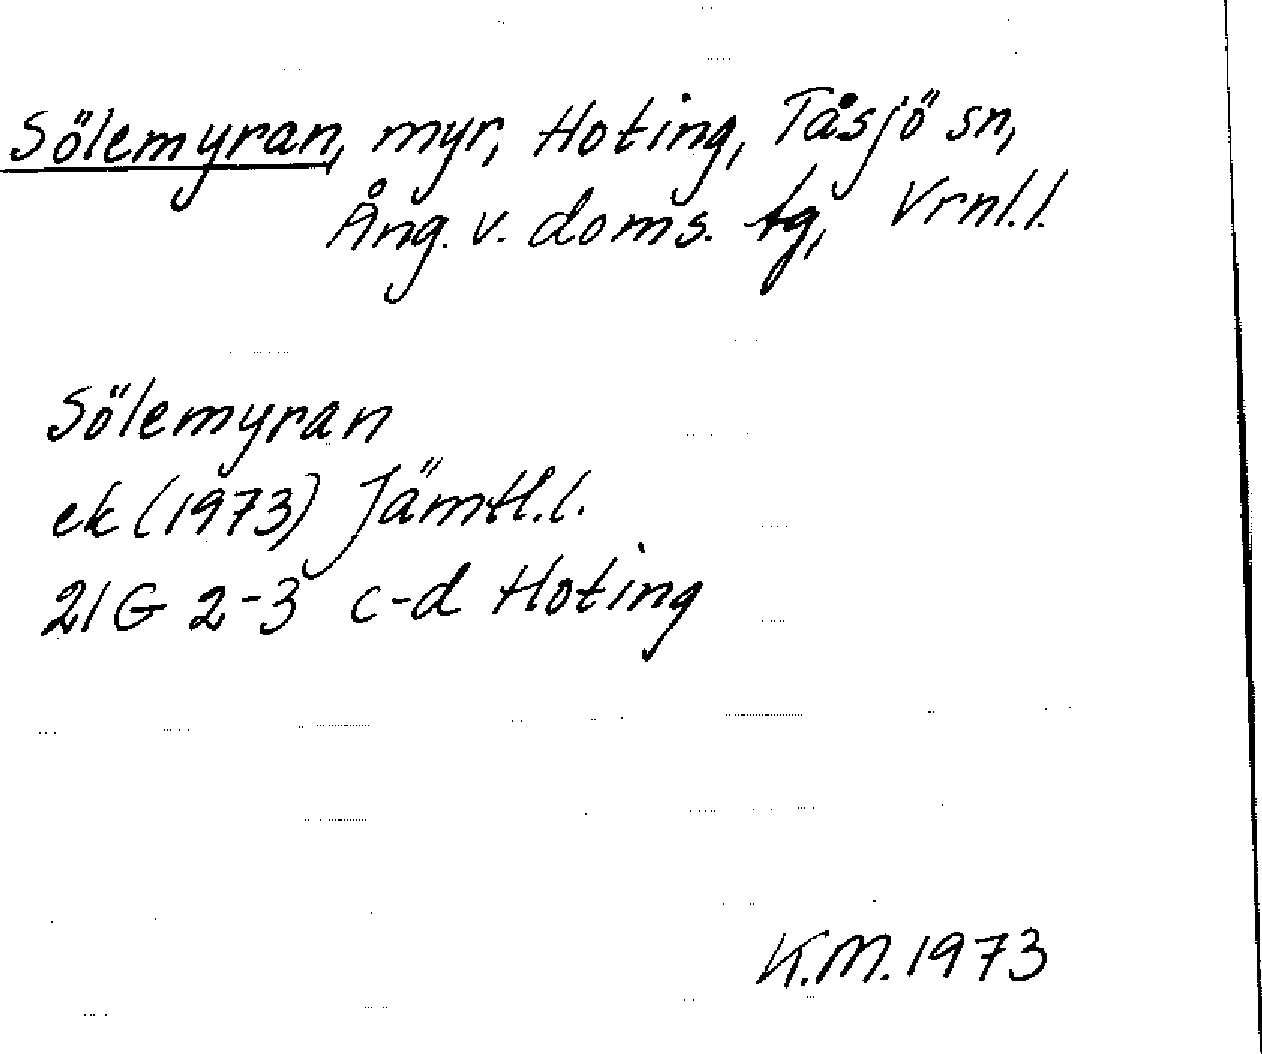 Sölemyran, myr, Hoting, Tåsjö sn,
Ång. v. doms. tg, Vrnl.l.
Sölemyran
ek (1973) Jämtl.l.
21G 2-3 c-d Hoting
K.M. 1973